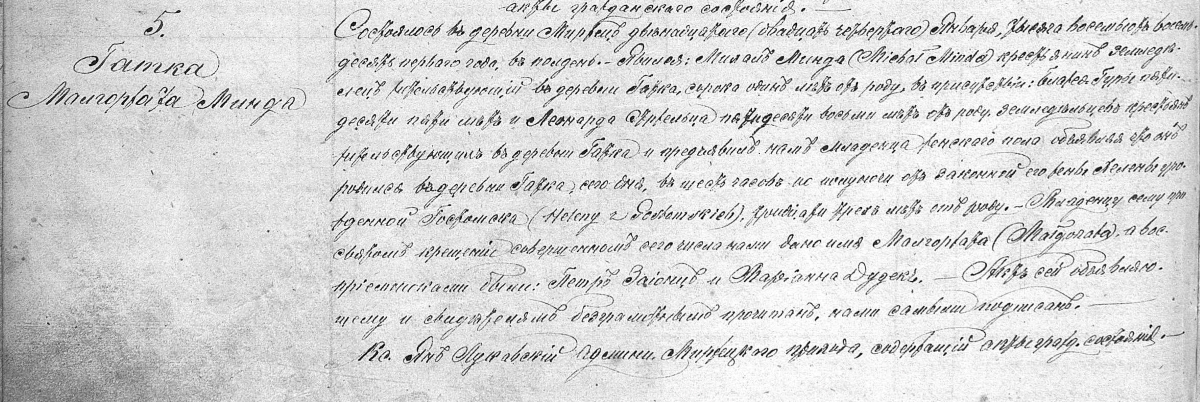 акты гражданского состоянія.
5.
Гатка
Малгоржата Минда
Состоялось въ деревни Миржецъ двѣнадцатого (двадцать четвертого) Января, тысяча восемьсотъ восемь-
десятъ первого года, въ полдень. - Явился: Михалъ Минда (Michał Minda) крестьянинъ земледѣ-
лецъ жительствующій въ деревни Гатка, сорока одинъ лѣтъ отъ роду, въ присутствіи: Блажея пяти-
десяти пяти лѣтъ и Леонарда пятидесяти восьми лѣтъ отъ роду, земледѣльцевъ крестьянъ
жительствующихъ въ деревни Гатка и предъявилъ намъ младенца женскаго пола объявляя что онъ
родился въ деревни Гатка, сего дня, въ шесть часовъ по полуночи отъ законной его жены Хелены уро-
жденной (Heleny z), тридцати трехъ лѣтъ отъ роду. - Младенцу сему при
святомъ крещеніи совершенномъ сего числа нами дано имя Малгоржата (Małgorzata) а вос-
пріемниками были: Петръ Заіонцъ и Маріанна Дудекъ. - Актъ сей объявляю-
щему и свидѣтелямъ безграмотнымъ прочитанъ, нами самыми подписанъ. -
Кс. Янъ админи. Миржецкого прихода, содержащій акты гражд. состоянія.